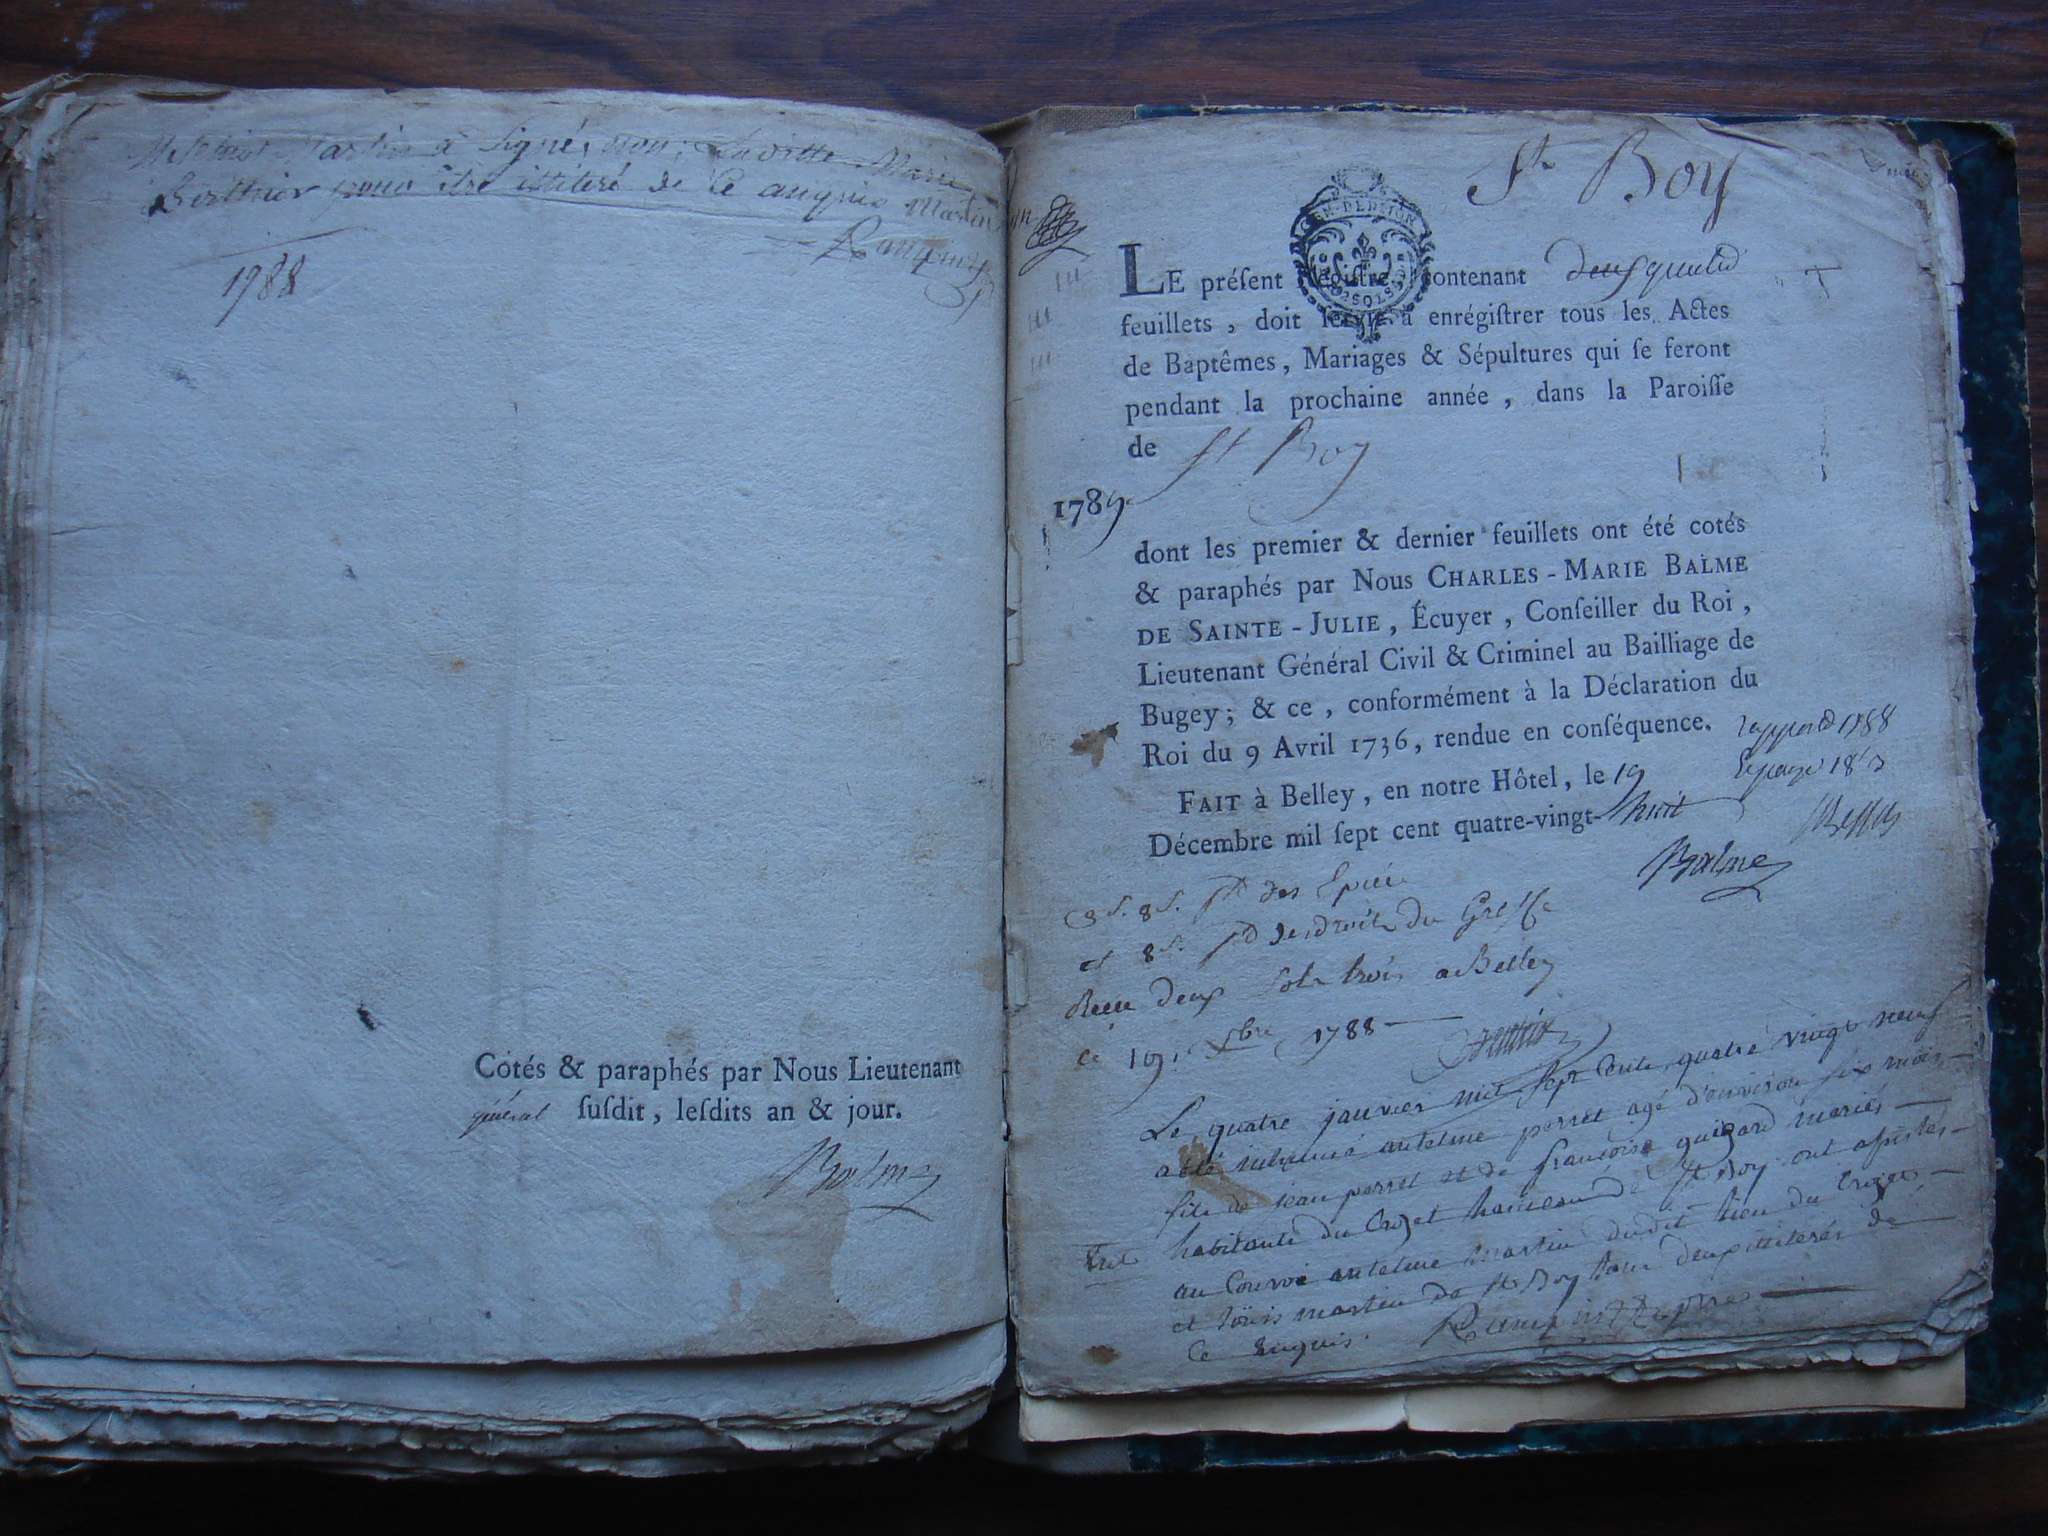 Martin a signé, non
Berthier pour être illiteré de ce enquis Martin
1788
Cotés & paraphés par Nous Lieutenant
général susdit, lesdits an & jour.
Balme
St Boy
GEN. DE DIJON
LE préſent Regiſtre contenant
feuillets, doit ſervir à enrégiſtrer tous les Actes
de Baptêmes, Mariages & Sépultures qui ſe feront
pendant la prochaine année, dans la Paroiſſe
de St Boy
1789
dont les premier & dernier feuillets ont été cotés
& paraphés par Nous CHARLES-MARIE BALME
DE SAINTE-JULIE, Écuyer, Conſeiller du Roi,
Lieutenant Général Civil & Criminel au Bailliage de
Bugey; & ce, conformément à la Déclaration du
Roi du 9 Avril 1736, rendue en conſéquence.
rapporté 1788
FAIT à Belley, en notre Hôtel, le 19
Décembre mil ſept cent quatre-vingt-huit
Balme
8 s. pr des Epices
et 8 s. pr de droits du Greffe
Reçu deux sols trois a Belley
ce 19 Xbre 1788
Le quatre janvier mil sept cents quatre vingt neuf
a été inhumé antelme perret agé d'environ six mois
fils de jean perret et de françoise guigard mariés
habitants du Crozet hameau de St Boy ont assistés
au Convoi antelme martin dudit lieu du Crozet
et loüis martin de St Boy tous deux illiterés de
ce enquis.